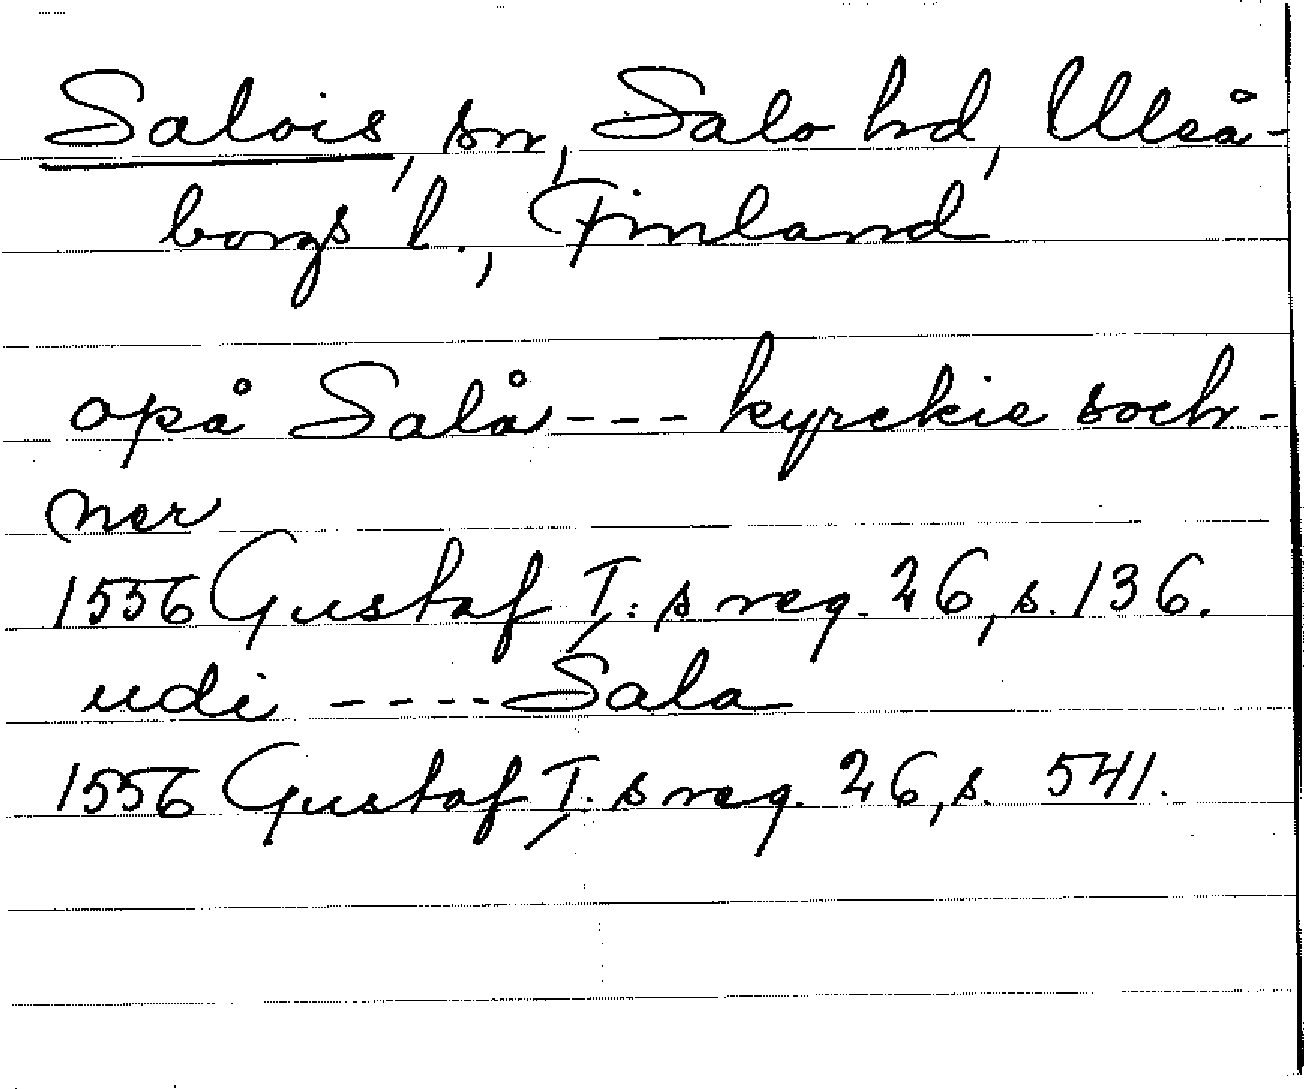 Salois, sn, Salo hd, Uleå-
borgs l., Finland
opå Salå --- kyrckie soch-
ner
1556 Gustaf I:s reg. 26, s. 136.
udi ---- Sala
1556 Gustaf I:s reg. 26, s. 541.